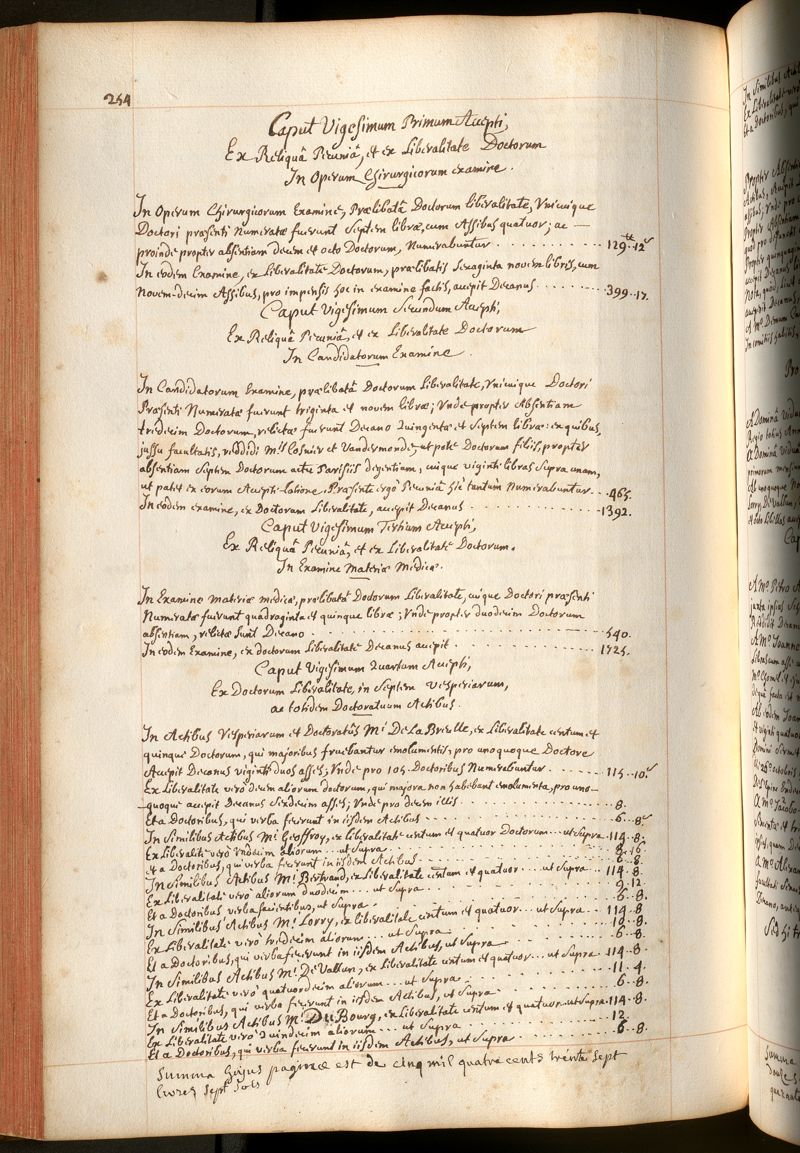 254
Caput Vigesimum Primum Accepti,
Ex Reliquâ Pecuniâ, et ex Liberalitate Doctorum
In Operum Chirurgicorum examine.
In Operum Chirurgicorum Examine, Prælibatâ Doctorum liberalitate, Unicuique
Doctori præsenti Numeratæ fuerunt Septem libræ, cum Assibus quatuor; ac
proinde propter absentiam decem et octo Doctorum, Numerabuntur 129tt 12s
In eodem Examine, ex Liberalitate Doctorum, prælibatis Sexaginta novem libris, cum
Novem-decim Assibus, pro impensis hoc in examine factis, accepit Decanus 399..17.
Caput Vigesimum Secundum Accepti,
Ex Reliquâ Pecuniâ, et ex Liberalitate Doctorum
In Candidatorum Examine.
In Candidatorum Examine, prælibatâ Doctorum Liberalitate, Unicuique Doctori
Præsenti Numeratæ fuerunt triginta et novem libræ; Unde propter Absentiam
tredecim Doctorum, relictæ fuerunt Decano Quingentæ et Septem libræ: ex quibus,
jussu facultatis, reddidi Mis Cosnier et Vandermonde, ut pote Doctorum filiis, propter
absentiam Septem Doctorum actu Parisiis degentium, cuique viginti libras Supra unam,
ut patet ex eorum Accepti-latione. Præsente ergò Pecuniâ hîc tantùm Numerabuntur 465.
In eodem examine, ex Doctorum Liberalitate, accepit Decanus 1392.
Caput Vigesimum Tertium Accepti,
Ex Reliquâ Pecuniâ, et ex Liberalitate Doctorum.
In Examine Materiæ Medicæ.
In Examine materiæ medicæ, prælibatâ Doctorum Liberalitate, cuique Doctori præsenti
Numeratæ fuerunt quadraginta et quinque libræ; Unde propter duodecim Doctorum
absentiam, relictæ Sunt Decano 540.
In eodem Examine, ex doctorum Liberalitate Decanus accepit 1725.
Caput Vigesimum Quartum Accepti,
Ex Doctorum Liberalitate, in Septem Vesperiarum,
ac totidem Doctoratuum Actibus.
In Actibus Vesperiarum et Doctoratûs Mi De La Brielle, ex Liberalitate centum et
quinque Doctorum, qui majoribus fruebantur emolumentis, pro unoquoque Doctore
Accepit Decanus viginti duos asses; Unde pro 105. Doctoribus Numerabuntur 115..10s
Ex Liberalitate verò decem aliorum doctorum, qui majora non habebant emolumenta, pro uno-
quoque accepit Decanus Sexdecim asses; Unde pro decem illis 8.
Et a Doctoribus, qui verba fecerunt in iisdem Actibus 6..8s
In Similibus Actibus Mi Geoffroy, ex liberalitate centum et quatuor Doctorum...ut Supra 114..8.
Ex Liberalite verò Undecim aliorum...ut Supra 8..16.
et a Doctoribus, qui verba fecerunt in iisdem Actibus 6..8.
In Similibus Actibus Mi Bertrand, ex Liberalitate centum et quatuor...ut Supra 114..8.
Ex Liberalitate verò aliorum duodecim...ut Supra 9..12.
Et a Doctoribus verba facientibus, ut Supra 6..8.
In Similibus Actibus Mi Lorry, ex liberalitate centum et quatuor...ut Supra 114..8
Ex Liberalitate verò tredecim aliorum...ut Supra 10..8.
Et a Doctoribus, qui verba fecerunt in iisdem Actibus, ut Supra 6..8.
In Similibus Actibus Mi De Vallun, ex Liberalitate centum et quatuor...ut Supra 114..8.
Ex Liberalitate verò quatuordecim aliorum...ut Supra 11..4.
Et a Doctoribus, qui verba fecerunt in iisdem Actibus, ut Supra 6..8.
In Similibus Actibus Mi Du Bourg, ex Liberalitate centum et quatuor ut Supra 114..8.
Ex Liberalitate verò Quindecim aliorum...ut Supra 12.
Et a Doctoribus, qui verba fecerunt in iisdem Actibus, ut Supra 6..8.
Summa hujus paginæ est de cinq mil quatre cents trente Sept
livres Sept Sols